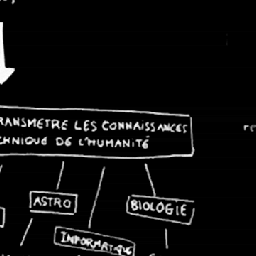 TRANSMETRE LES CONNAISSANCES
TECHNIQUE DE L'HUMANITÉ
ASTRO
BIOLOGIE
INFORMATIQUE